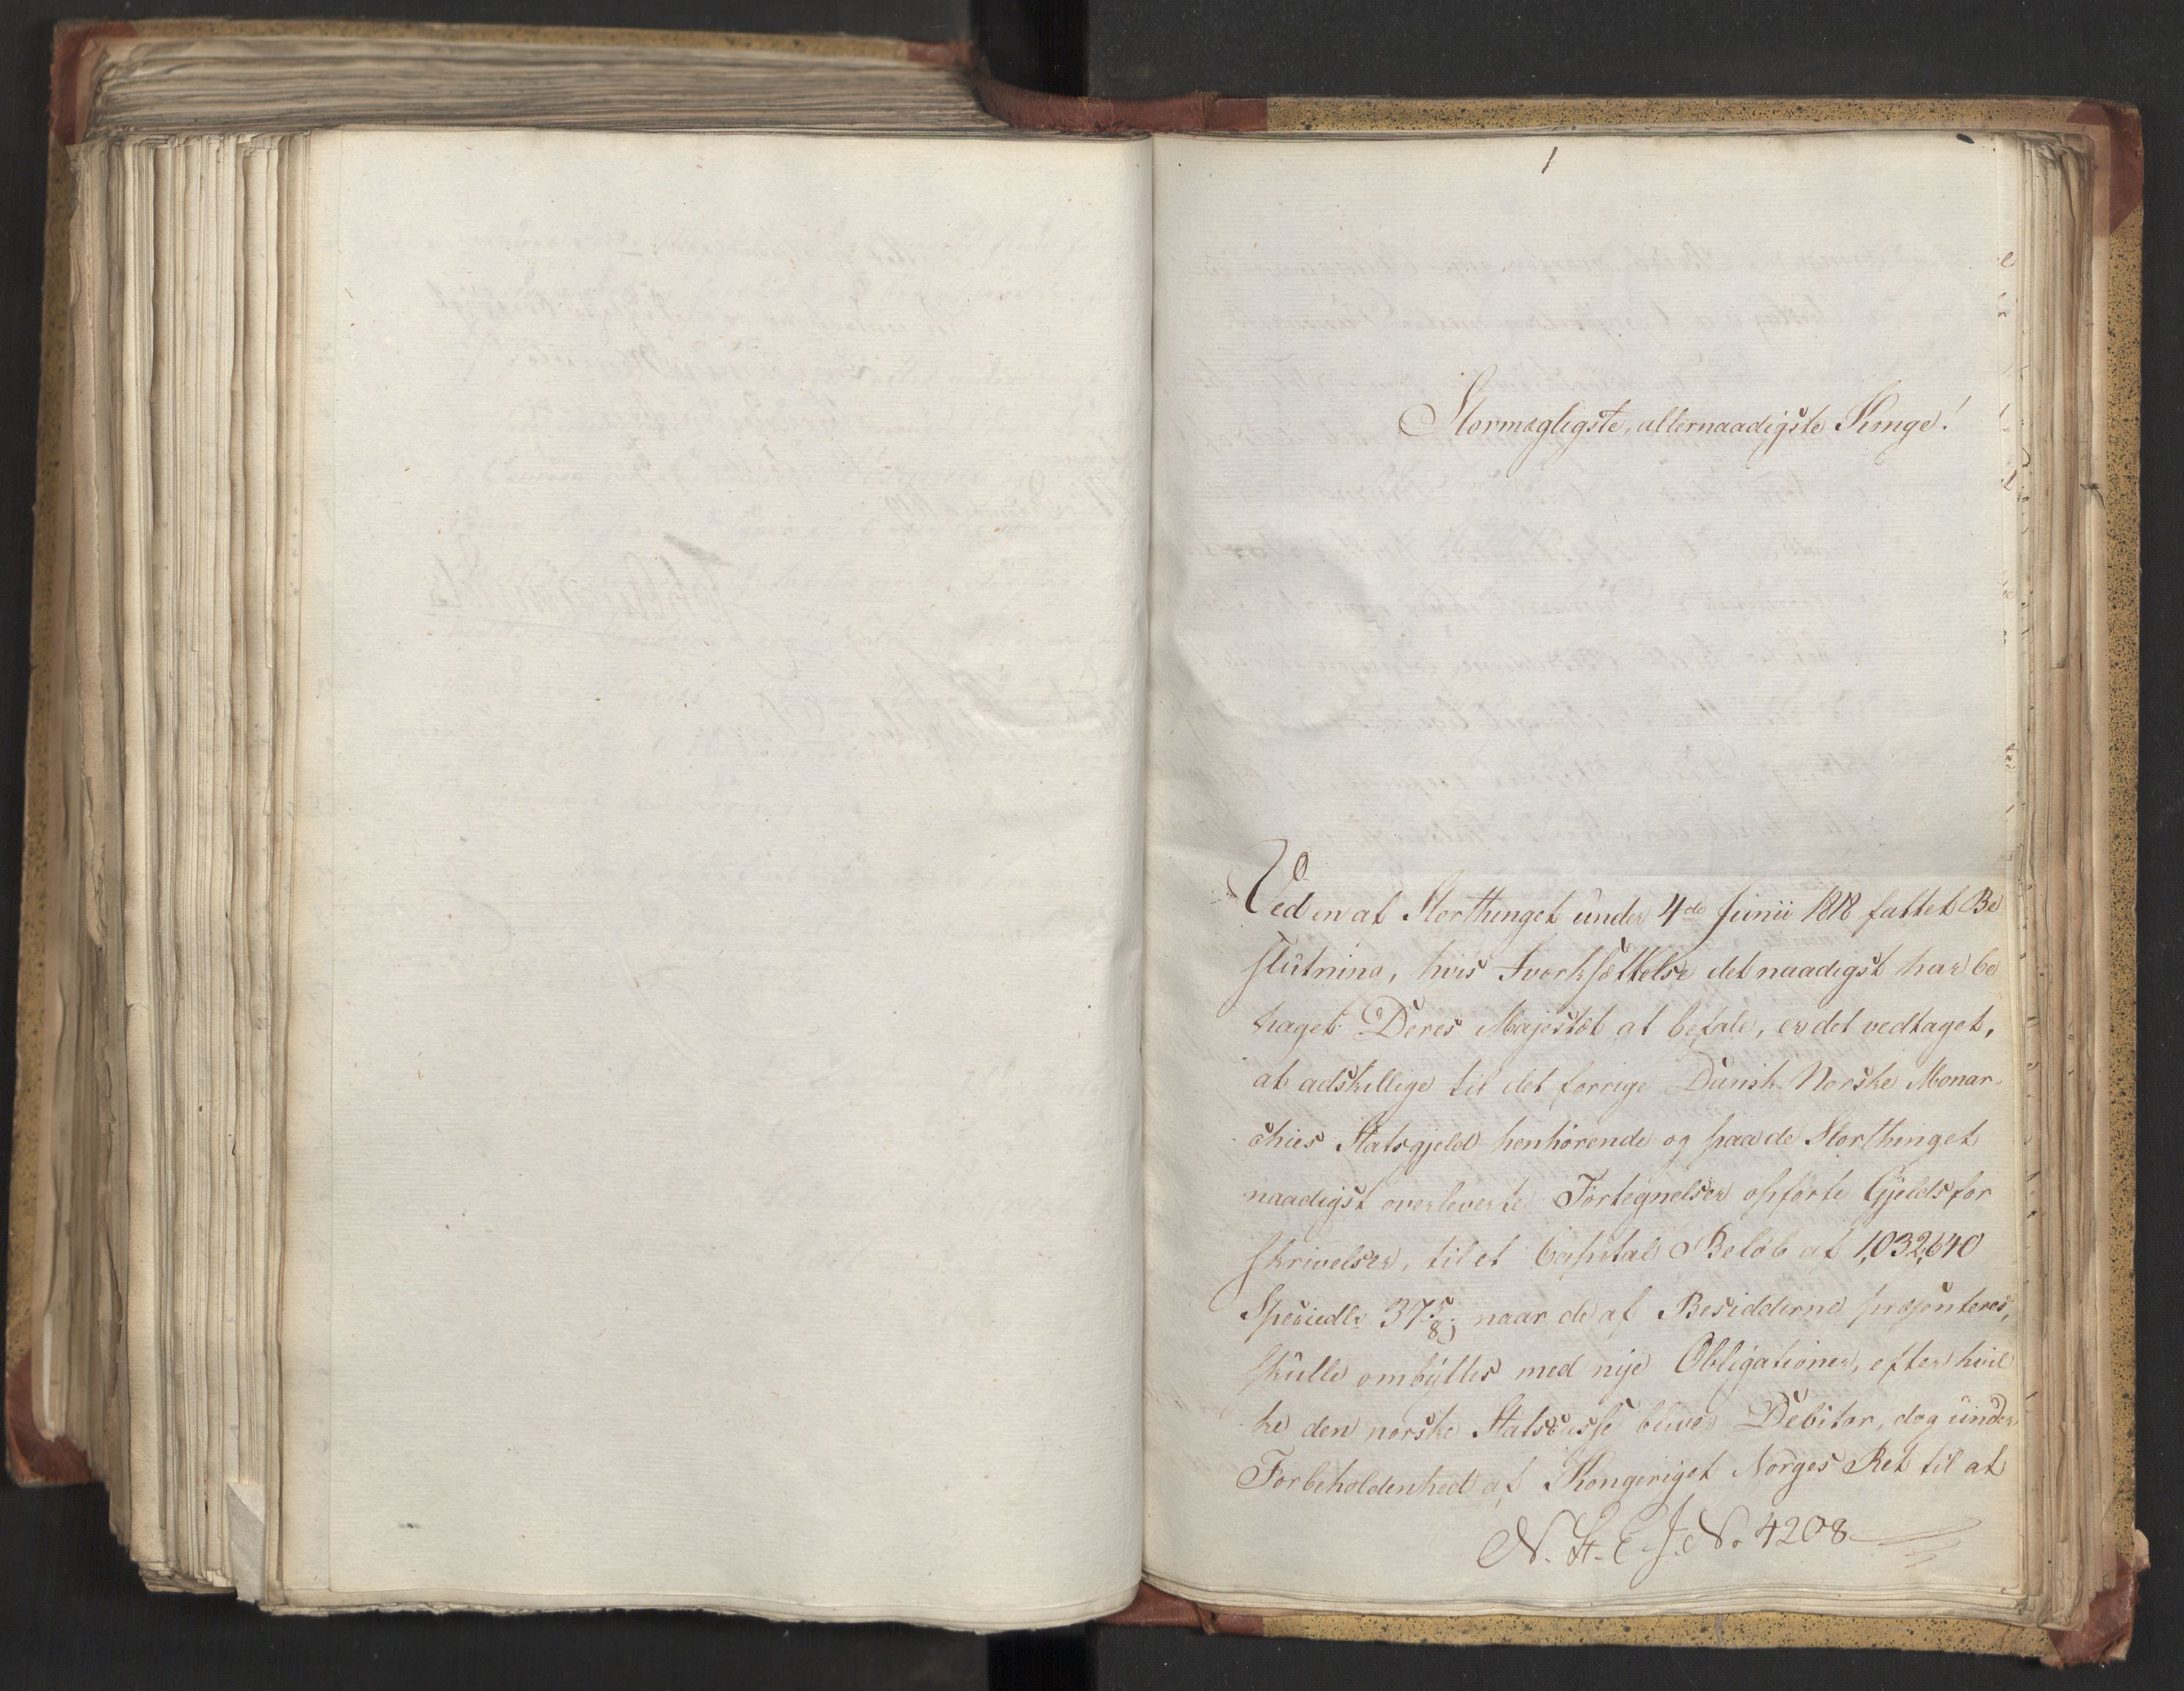 1
Stormægtigste, allernaadigste Konge!
Ved en af Storthinget under 4de Junii 1818 fattet Be
slutning, hvis Iværksættelse det naadigst har be
haget Deres Majestæt at befale, er det vedtaget,
at adskillige til det forrige Dansk-Norske Monar-
chies Statsgjeld henhörende og paa de Storthinget
naadigst overleverte Fortegnelser opförte Gjeldsfor
skrivelser, til et Capital Belöb af 1,032,640
Speciedlr 37 5/8 ; naar de af Besidderne præsenteres,
skulle ombyttes med nye Obligationer, efter hvil
ke den norske Statscasse bliver Debitor, dog under
Forbeholdenhed af Kongeriget Norges Ret til at
N. St. E. J. No. 4208